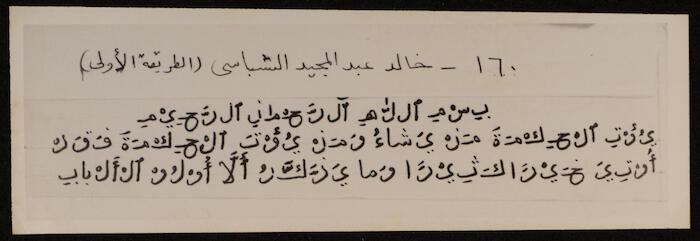 ١٦٠ - خالد عبد المجيد الشباسى (الطريقة الأولى)
بسم الله الرحمٰن الرحيم
يُؤتي الحكمة من يشاءُ ومن يُؤت الحكمة فقد
أُوتي خيرا كثيرا وما يذكّر ألّا أُولو الألباب